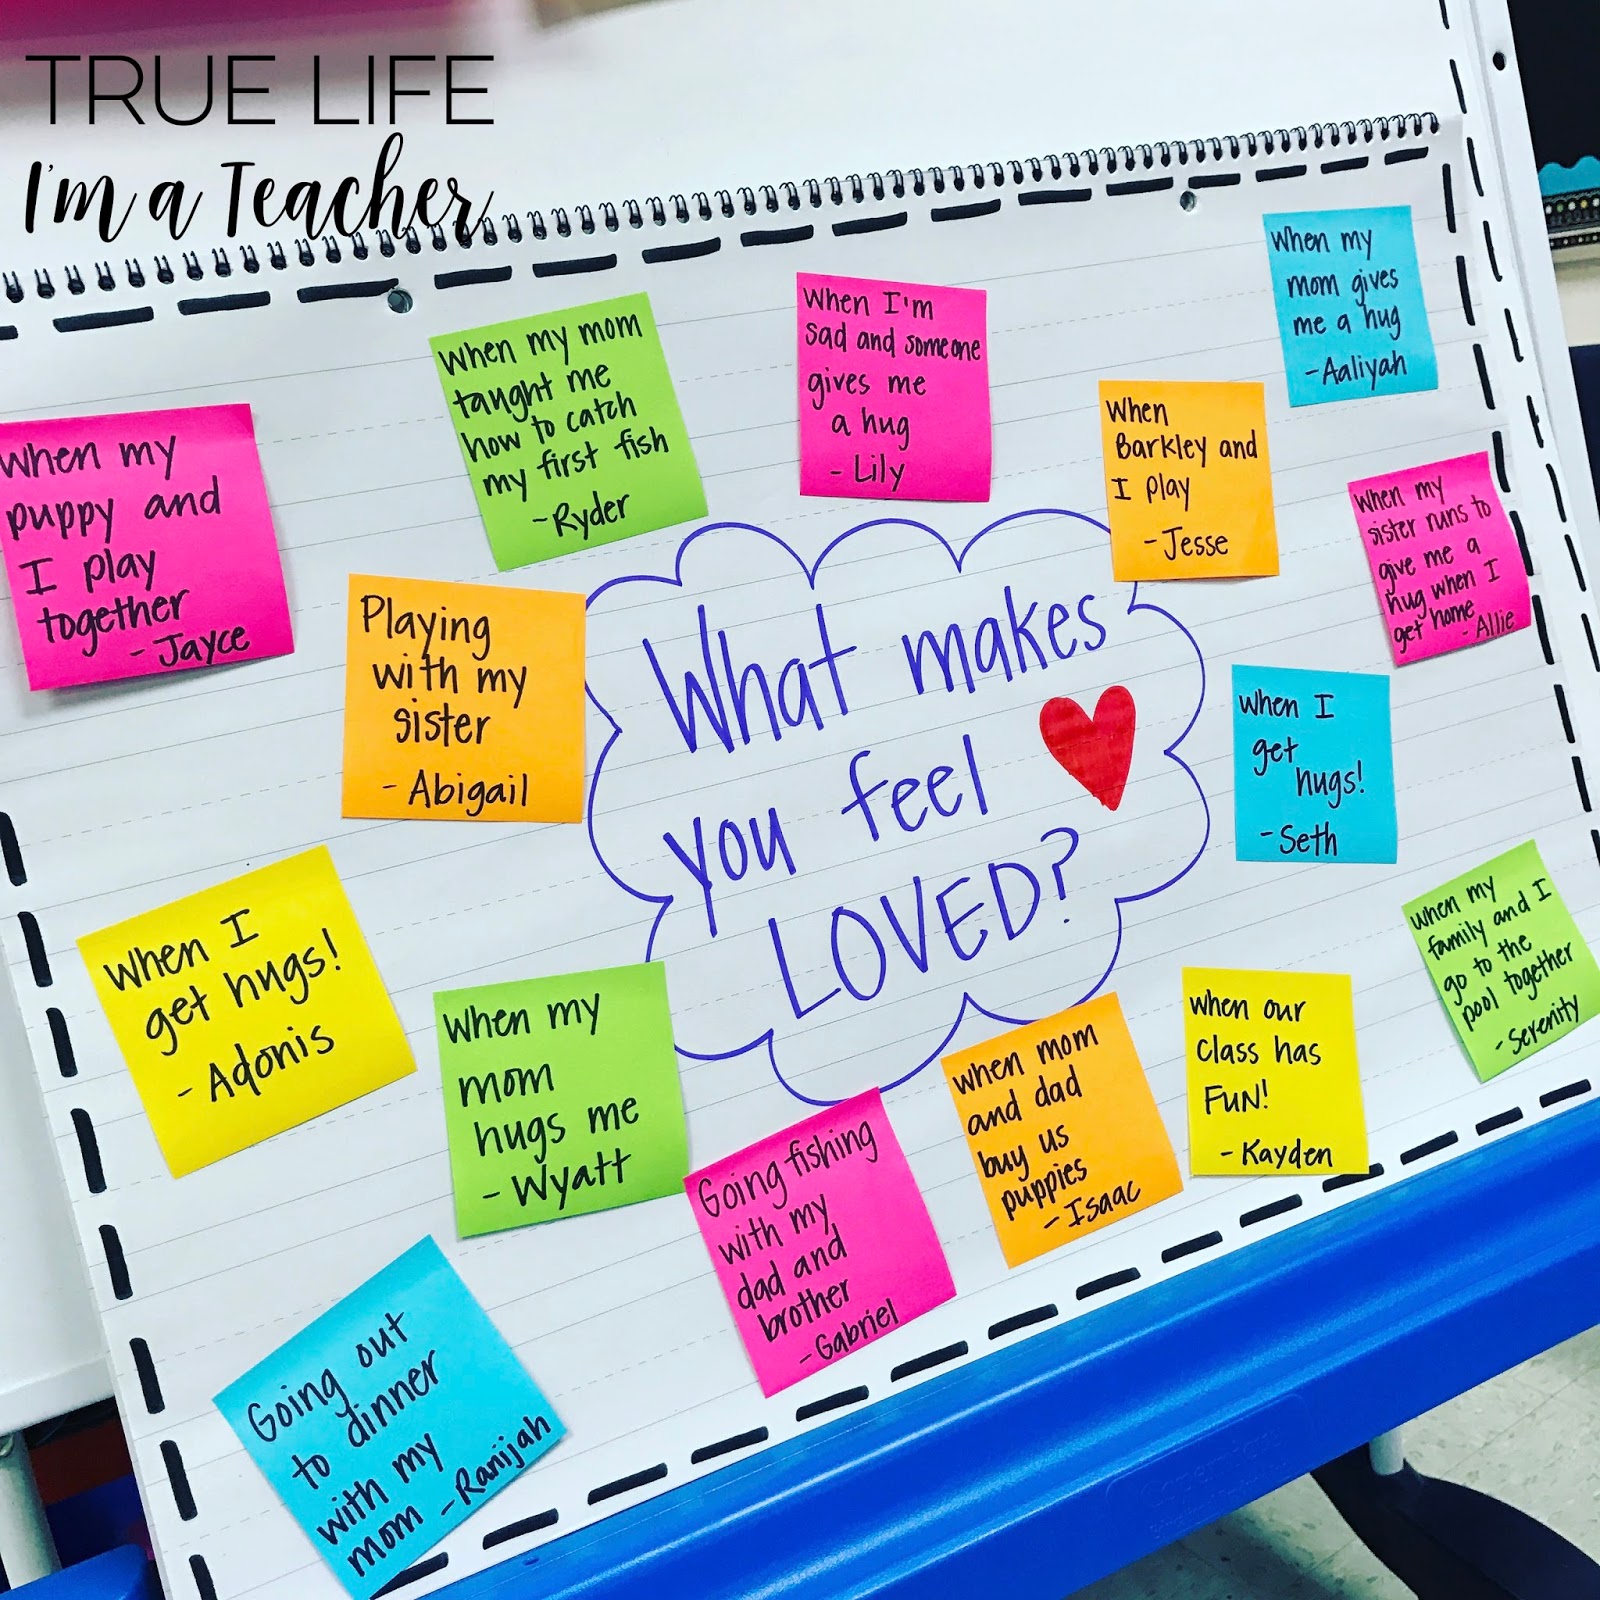 TRUE LIFE
I'm a Teacher
When my
mom gives
me a hug
-Aaliyah
When I'm
sad and someone
gives me
a hug
- Lily
When my mom
taught me
how to catch
my first fish
-Ryder
When
Barkley and
I play
-Jesse
When my
puppy and
I play
together
- Jayce
When my
sister runs to
give me a
hug when I
get home
- Allie
Playing
with my
sister
- Abigail
What makes
you feel
LOVED?
When I
get
hugs!
-Seth
When I
get hugs!
- Adonis
When my
family and I
go to the
pool together
- Serenity
When my
mom
hugs me
- Wyatt
when mom
and dad
buy us
puppies
- Isaac
when our
class has
FUN!
- Kayden
Going fishing
with my
dad and
brother
- Gabriel
Going out
to dinner
with my
mom - Ranijah